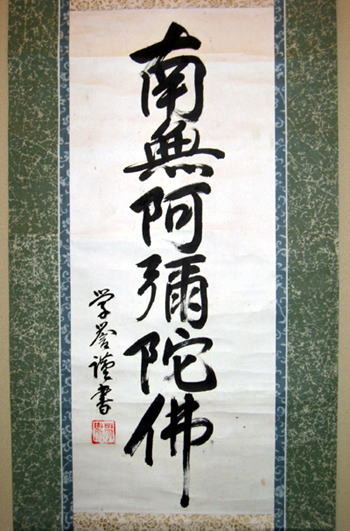 南無阿彌陀佛
学誉謹書